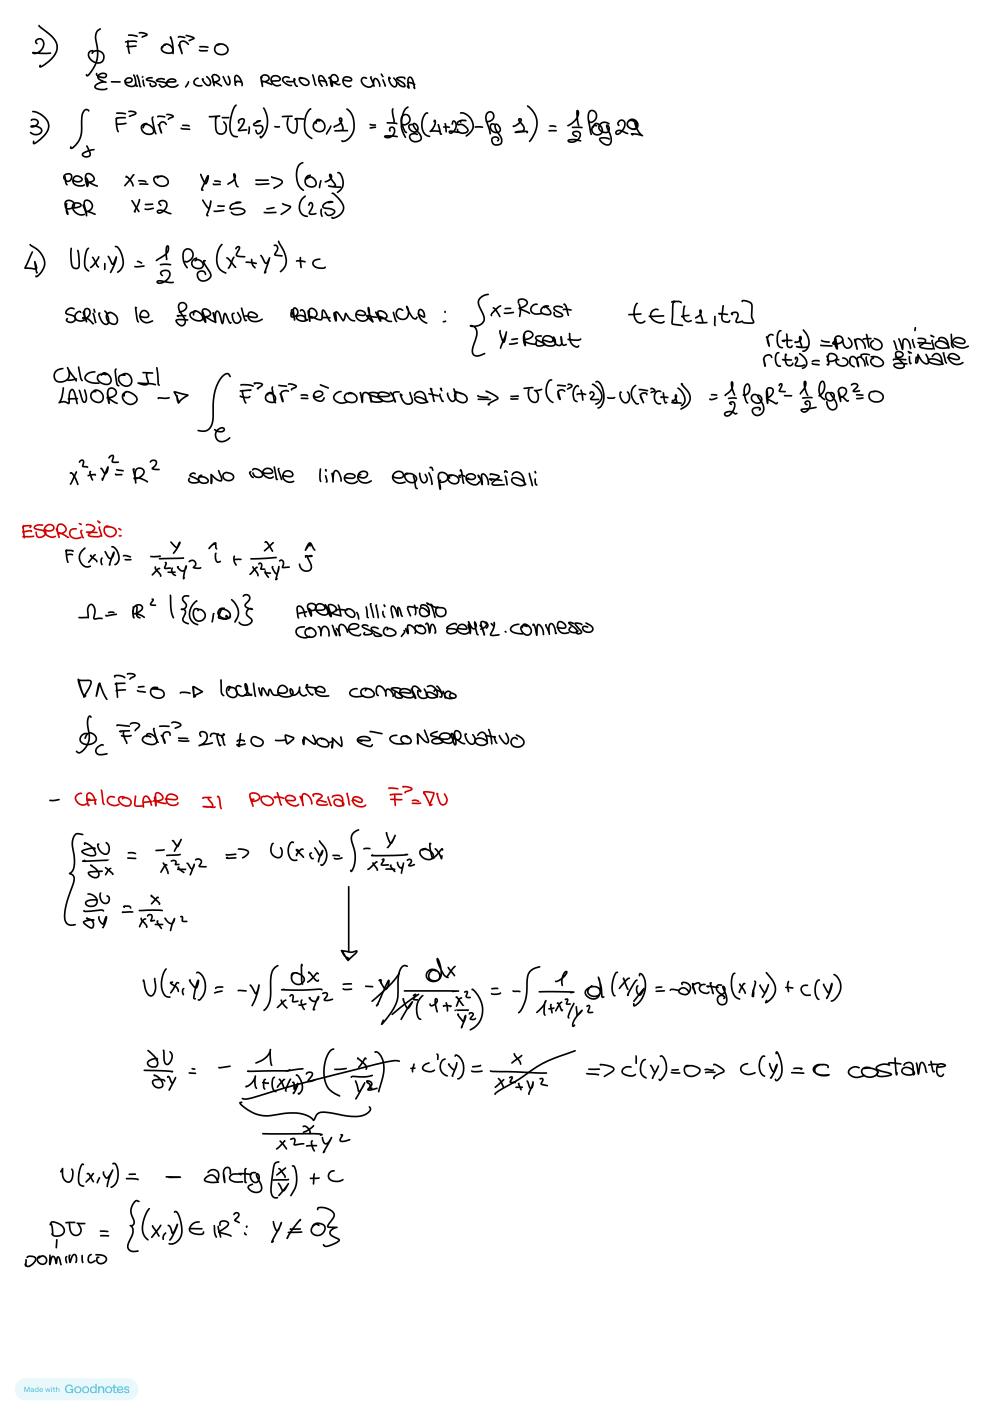 2) ∮ F⃗ dr⃗ = 0
ξ-ellisse, CURVA REGOLARE CHIUSA
3) ∫γ F⃗ dr⃗ = U(2,5)-U(0,1) = 1/2 (log(4+25)-log 1) = 1/2 log 29
PER x=0 y=1 => (0,1)
PER x=2 y=5 => (2,5)
4) U(x,y) = 1/2 log(x²+y²) + c
SCRIVO le formule PARAMETRICHE: { x=Rcost t∈[t1,t2]
y=Rsent
r(t1) = PUNTO iniziale
r(t2) = PUNTO finale
CALCOLO Il
LAVORO -▷ ∫e F⃗ dr⃗ = è conservativo => = U(r⃗(t2))-U(r⃗(t1)) = 1/2 lgR² - 1/2 lgR² = 0
x²+y²=R² sono delle linee equipotenziali
Esercizio:
F(x,y) = -y/(x²+y²) î + x/(x²+y²) ĵ
Ω = R² \ {(0,0)} APERTO, illimitato
connesso, non sempl. connesso
∇∧F⃗=0 -▷ localmente conservativo
∮c F⃗ dr⃗ = 2π ≠ 0 -▷ NON è CONSERVATIVO
- CALCOLARE Il potenziale F⃗=∇U
{ ∂U/∂x = -y/(x²+y²) => U(x,y) = ∫ -y/(x²+y²) dx
∂U/∂y = x/(x²+y²)
U(x,y) = -y ∫ dx/(x²+y²) = -y ∫ dx/(y²(1+x²/y²)) = -∫ 1/(1+x²/y²) d(x/y) = -arctg(x/y) + c(y)
∂U/∂y = - 1/(1+(x/y)²) (-x/y²) + c'(y) = x/(x²+y²) => c'(y)=0 => c(y) = c costante
x/(x²+y²)
U(x,y) = - arctg(x/y) + c
DU = {(x,y)∈R²: y≠0}
DOMINICO
Made with Goodnotes